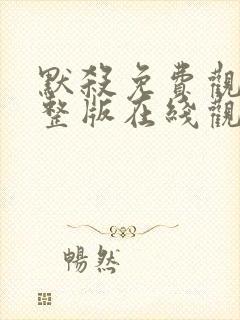 默殺免費觀
整版在綫觀
暢然